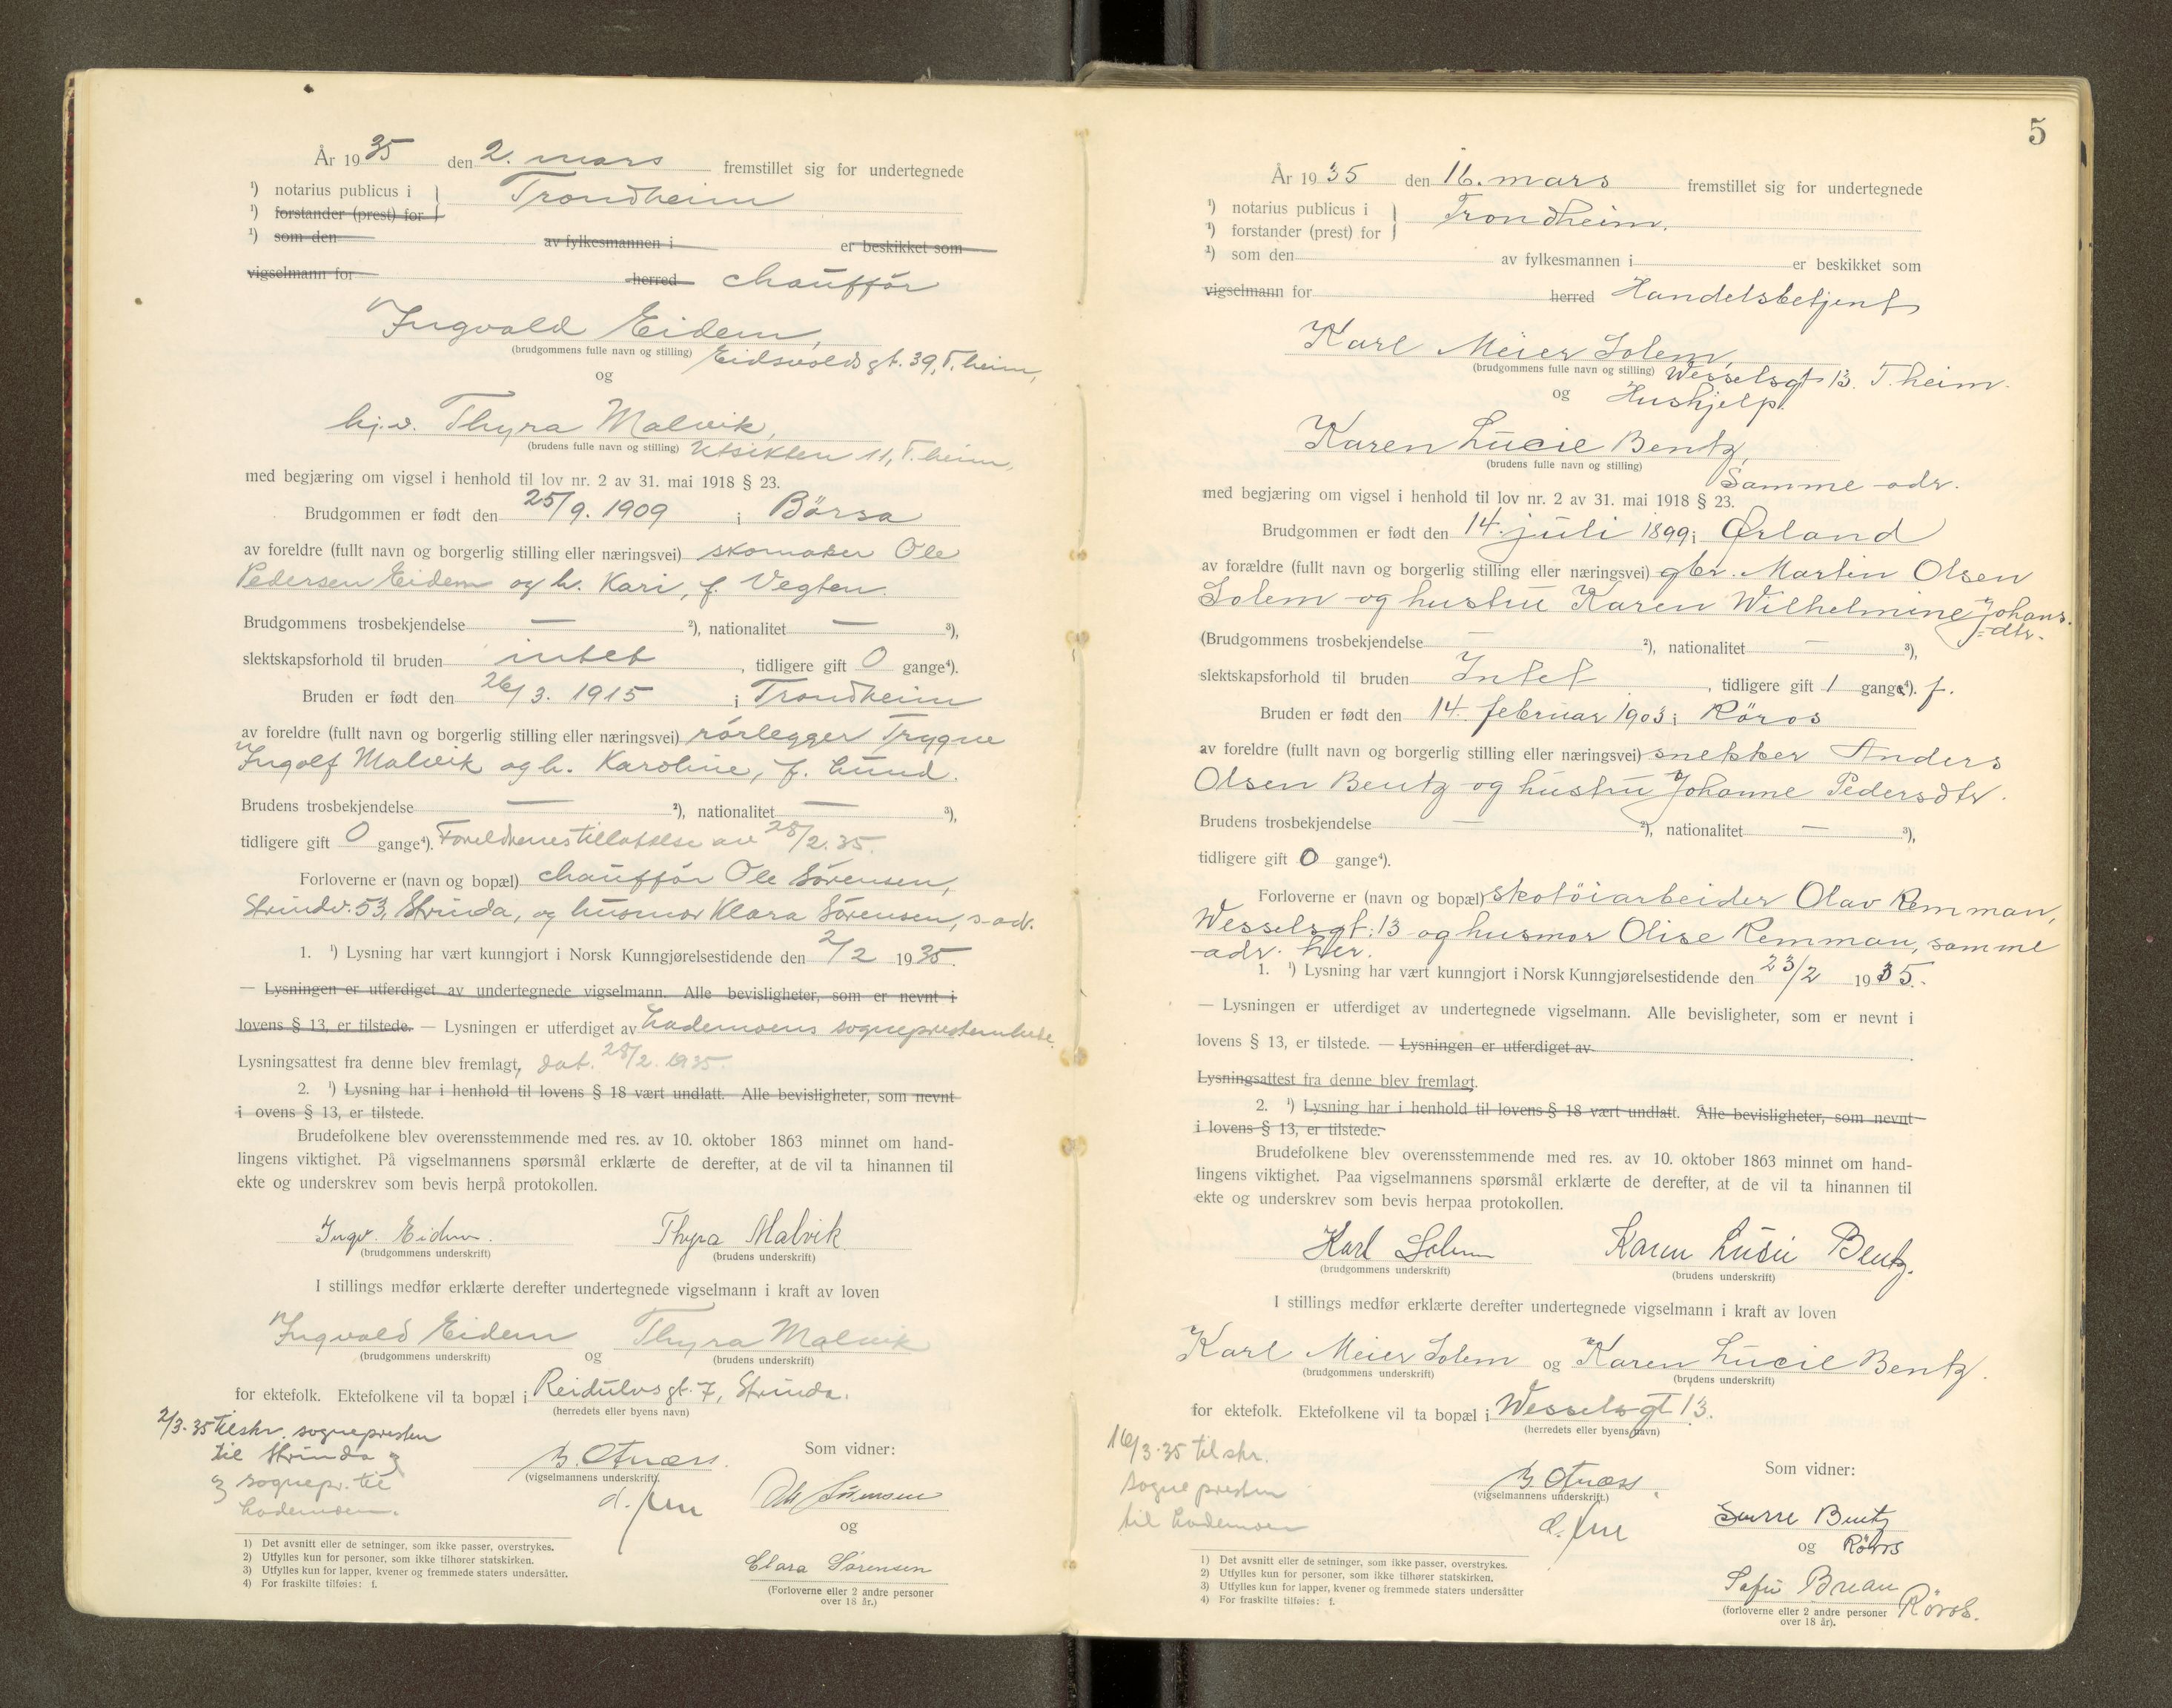 År 1935 den 2. mars fremstillet sig for undertegnede
¹) notarius publicus i } Trondheim
¹) forstander (prest) for
¹) som den av fylkesmannen i er beskikket som
vigselmann for herred chauffør
Ingvald Eidem,
(brudgommens fulle navn og stilling) Eidsvoldsgt. 39, T.heim,
og
hj.v. Thyra Malvik,
(brudens fulle navn og stilling) Utsikten 11, T.heim,
med begjæring om vigsel i henhold til lov nr. 2 av 31. mai 1918 § 23.
Brudgommen er født den 25/9. 1909 i Börsa
av foreldre (fullt navn og borgerlig stilling eller næringsvei) skomaker Ole
Pedersen Eidem og h. Kari, f. Vegten.
Brudgommens trosbekjendelse — ²), nationalitet — ³),
slektskapsforhold til bruden intet, tidligere gift 0 gange⁴).
Bruden er født den 26/3. 1915 i Trondheim
av foreldre (fullt navn og borgerlig stilling eller næringsvei) rörlegger Trygve
Ingolf Malvik og h. Karoline, f. Lund.
Brudens trosbekjendelse — ²), nationalitet — ³),
tidligere gift 0 gange⁴). Foreldrenes tillatelse av 28/2. 35.
Forloverne er (navn og bopæl) chauffør Ole Sörensen,
Strindv. 53, Strinda, og husmor Klara Sörensen, s. adr.
1. ¹) Lysning har vært kunngjort i Norsk Kunngjørelsestidende den 2/2 1935.
— Lysningen er utferdiget av undertegnede vigselmann. Alle bevisligheter, som er nevnt i
lovens § 13, er tilstede. — Lysningen er utferdiget av Lademoens sogneprestembede.
Lysningsattest fra denne blev fremlagt, dat. 28/2. 1935.
2. ¹) Lysning har i henhold til lovens § 18 vært undlatt. Alle bevisligheter, som nevnt
i ovens § 13, er tilstede.
Brudefolkene blev overensstemmende med res. av 10. oktober 1863 minnet om hand-
lingens viktighet. På vigselmannens spørsmål erklærte de derefter, at de vil ta hinannen til
ekte og underskrev som bevis herpå protokollen.
Ingv. Eidem. Thyra Malvik
(brudgommens underskrift) (brudens underskrift)
I stillings medfør erklærte derefter undertegnede vigselmann i kraft av loven
Ingvald Eidem og Thyra Malvik
(brudgommens underskrift) (brudens underskrift)
for ektefolk. Ektefolkene vil ta bopæl i Reidulvsgt. 7, Strinda.
(herredets eller byens navn)
2/3. 35 tilskr. sognepresten
til Strinda og
og sognepr. til
Lademoen.
B. Otnæss.
(vigselmannens underskrift).
Som vidner:
Ole Sörensen
og
Clara Sørensen
(Forloverne eller 2 andre personer
over 18 år.)
1) Det avsnitt eller de setninger, som ikke passer, overstrykes.
2) Utfylles kun for personer, som ikke tilhører statskirken.
3) Utfylles kun for lapper, kvener og fremmede staters undersåtter.
4) For fraskilte tilføies: f.
5
År 1935 den 16. mars fremstillet sig for undertegnede
¹) notarius publicus i } Trondheim.
¹) forstander (prest) for
¹) som den av fylkesmannen i er beskikket som
vigselmann for herred Handelsbetjent
Karl Meier Solem,
(brudgommens fulle navn og stilling) Wesselsgt 13. T.heim.
og Hushjelp.
Karen Lucie Bentz,
(brudens fulle navn og stilling)
Samme adr.
med begjæring om vigsel i henhold til lov nr. 2 av 31. mai 1918 § 23.
Brudgommen er født den 14. juli 1899 i Ørland
av forældre (fullt navn og borgerlig stilling eller næringsvei) gbr. Martin Olsen
Solem og hustru Karen Wilhelmine Johans.
-dtr.
(Brudgommens trosbekjendelse — ²), nationalitet — ³),
slektskapsforhold til bruden Intet, tidligere gift 1 gange⁴). f.
Bruden er født den 14. februar 1903 i Röros
av foreldre (fullt navn og borgerlig stilling eller næringsvei) snekker Anders
Olsen Bentz og hustru Johanne Pedersdtr.
Brudens trosbekjendelse — ²), nationalitet — ³),
tidligere gift 0 gange⁴).
Forloverne er (navn og bopæl) skotöiarbeider Olav Remman,
Wesselsgt. 13 og husmor Olise Remman, samme
adr. her.
1. ¹) Lysning har vært kunngjort i Norsk Kunngjørelsestidende den 23/2 1935.
— Lysningen er utferdiget av undertegnede vigselmann. Alle bevisligheter, som er nevnt i
lovens § 13, er tilstede. — Lysningen er utferdiget av
Lysningsattest fra denne blev fremlagt.
2. ¹) Lysning har i henhold til lovens § 18 vært undlatt. Alle bevisligheter, som nevnt
i lovens § 13, er tilstede.
Brudefolkene blev overensstemmende med res. av 10. oktober 1863 minnet om hand-
lingens viktighet. Paa vigselmannens spørsmål erklærte de derefter, at de vil ta hinannen til
ekte og underskrev som bevis herpaa protokollen.
Karl Solem Karen Lusie Bentz.
(brudgommens underskrift) (brudens underskrift)
I stillings medfør erklærte derefter undertegnede vigselmann i kraft av loven
Karl Meier Solem og Karen Lucie Bentz.
(brudgommens underskrift) (brudens underskrift)
for ektefolk. Ektefolkene vil ta bopæl i Wesselsgt 13.
(herredets eller byens navn)
16/3. 35 tilskr.
sognepresten
til Lademoen
B. Otnæss.
(vigselmannens underskrift.)
Som vidner:
Bentz
og Röros
Brean Röros.
(forloverne eller 2 andre personer
over 18 år).
1) Det avsnitt eller de setninger, som ikke passer, overstrykes.
2) Utfylles kun for personer, som ikke tilhører statskirken.
3) Utfylles kun for lapper, kvener og fremmede staters undersåtter
4) For fraskilte tilføies: f.